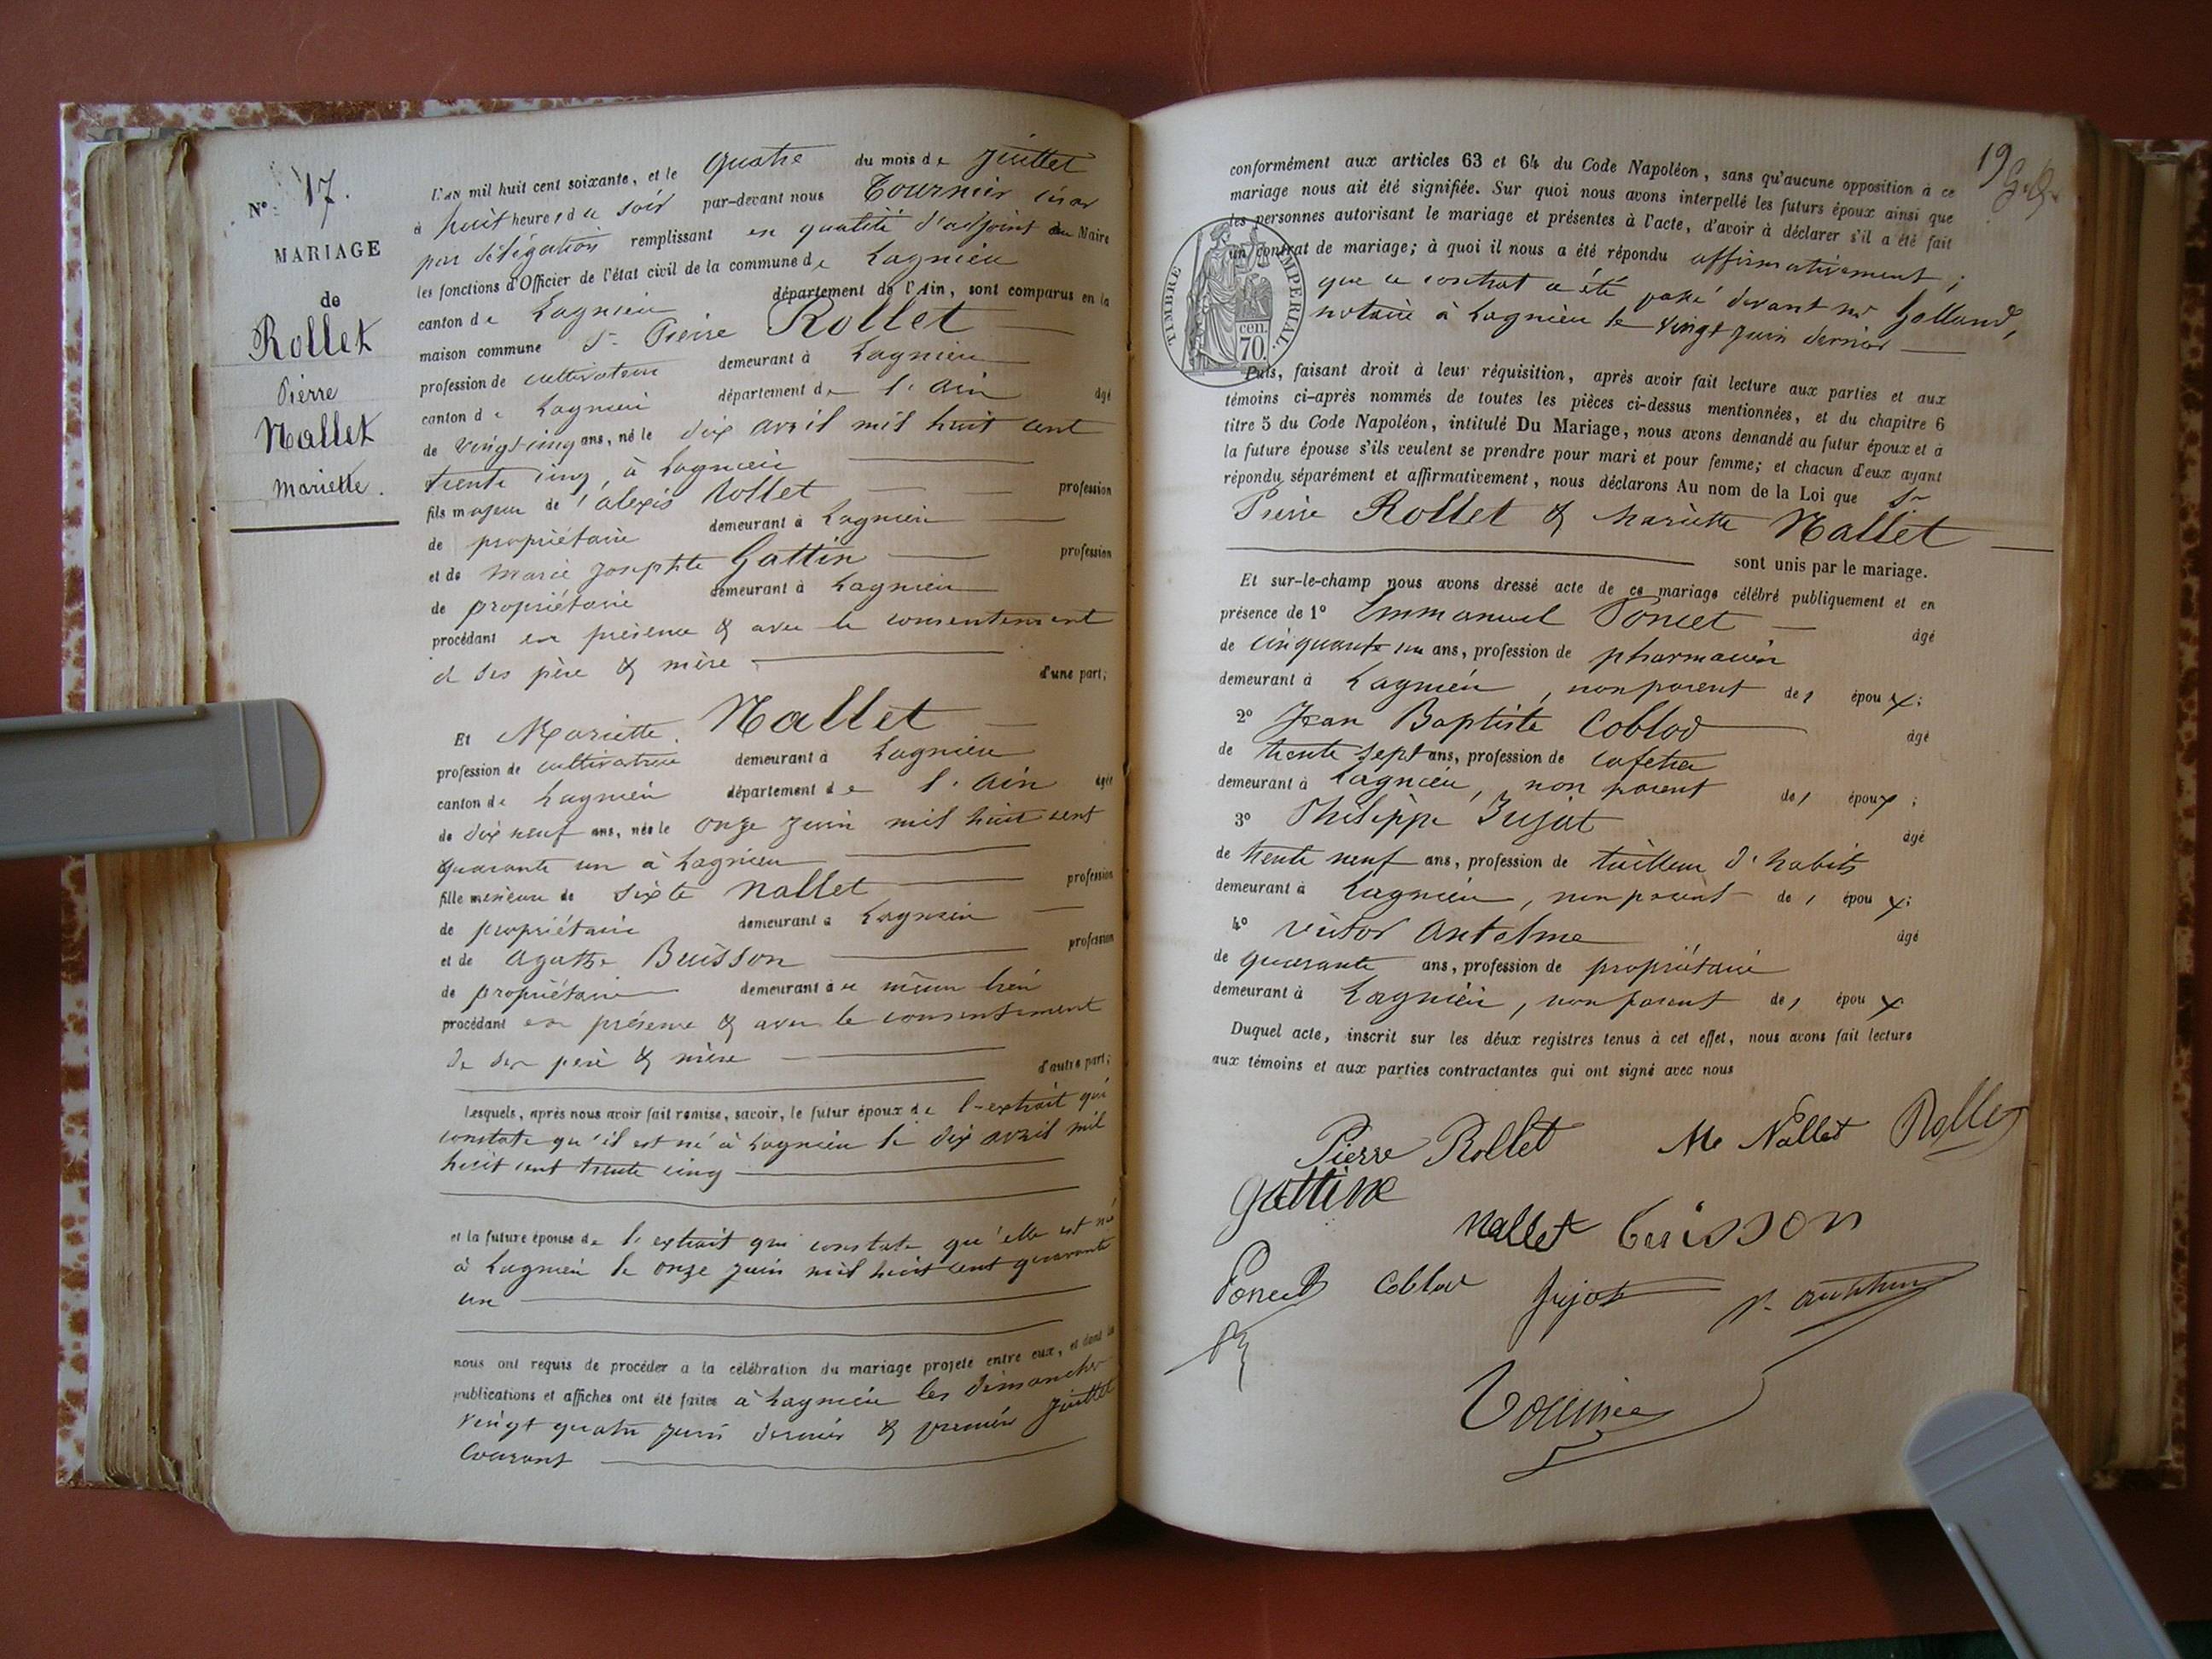 N.° 17.
MARIAGE
de
Rollet
Pierre
Nallet
Mariette.
L'AN mil huit cent soixante, et le quatre du mois de juillet
à huit heures du soir par-devant nous Tournier César
par délégation remplissant en qualité d'adjoint au Maire
les fonctions d'Officier de l'état civil de la commune de Lagnieu
canton de Lagnieu département de l'Ain, sont comparus en la
maison commune Sr Pierre Rollet
profession de cultivateur demeurant à Lagnieu
canton de Lagnieu département de l'Ain âgé
de vingt cinq ans, né le dix avril mil huit cent
trente cinq, à Lagnieu
fils majeur de alexis Rollet profession
de propriétaire demeurant à Lagnieu
et de Marie Josephte Gattin profession
de propriétaire demeurant à Lagnieu
procédant en présence & avec le consentement
de ses père & mère d'une part;
Et Mariette Nallet
profession de cultivatrice demeurant à Lagnieu
canton de Lagnieu département de l'Ain âgée
de dix neuf ans, née le onze juin mil huit cent
quarante un à Lagnieu
fille mineure de Sixte Nallet profession
de propriétaire demeurant à Lagnieu
et de Agathe Buisson profession
de propriétaire demeurant à u même lieu
procédant en présence & avec le consentement
de ses père & mère d'autre part;
Lesquels, après nous avoir fait remise, savoir, le futur époux de l'extrait qui
constate qu'il est né à Lagnieu le dix avril mil
huit cent trente cinq
et la future épouse de l'extrait qui constate qu'elle est né
à Lagnieu le onze juin mil huit cent quarante
un
nous ont requis de procéder à la célébration du mariage projeté entre eux, et dont les
publications et affiches ont été faites à Lagnieu les dimanches
vingt quatre juin dernier & premier juillet
courant
19
conformément aux articles 63 et 64 du Code Napoléon, sans qu'aucune opposition à ce
mariage nous ait été signifiée. Sur quoi nous avons interpellé les futurs époux ainsi que
les personnes autorisant le mariage et présentes à l'acte, d'avoir à déclarer s'il a été fait
un contrat de mariage; à quoi il nous a été répondu affirmativement;
que ce contrat a été passé devant me Golland,
notaire à Lagnieu le vingt juin dernier
TIMBRE IMPERIAL.
70. cen.
Puis, faisant droit à leur réquisition, après avoir fait lecture aux parties et aux
témoins ci-après nommés de toutes les pièces ci-dessus mentionnées, et du chapitre 6
titre 5 du Code Napoléon, intitulé Du Mariage, nous avons demandé au futur époux et à
la future épouse s'ils veulent se prendre pour mari et pour femme; et chacun d'eux ayant
répondu séparément et affirmativement, nous déclarons Au nom de la Loi que Sr
Pierre Rollet & Mariette Nallet
sont unis par le mariage.
Et sur-le-champ nous avons dressé acte de ce mariage célébré publiquement et en
présence de 1° Emmanuel Poncet âgé
de cinquante un ans, profession de pharmacien
demeurant à Lagnieu, non parent des époux;
2° Jean Baptiste Coblod âgé
de trente sept ans, profession de cafetier
demeurant à Lagnieu, non parent des époux;
3° Philippe Jujat âgé
de trente neuf ans, profession de tailleur d'habits
demeurant à Lagnieu, non parent des époux;
4° Victor Antelme âgé
de quarante ans, profession de propriétaire
demeurant à Lagnieu, non parent des époux
Duquel acte, inscrit sur les deux registres tenus à cet effet, nous avons fait lecture
aux témoins et aux parties contractantes qui ont signé avec nous
Pierre Rollet Me Nallet Rollet
gattine
Nallet buisson
Poncet Coblod Jujat V. antelme
Tournier